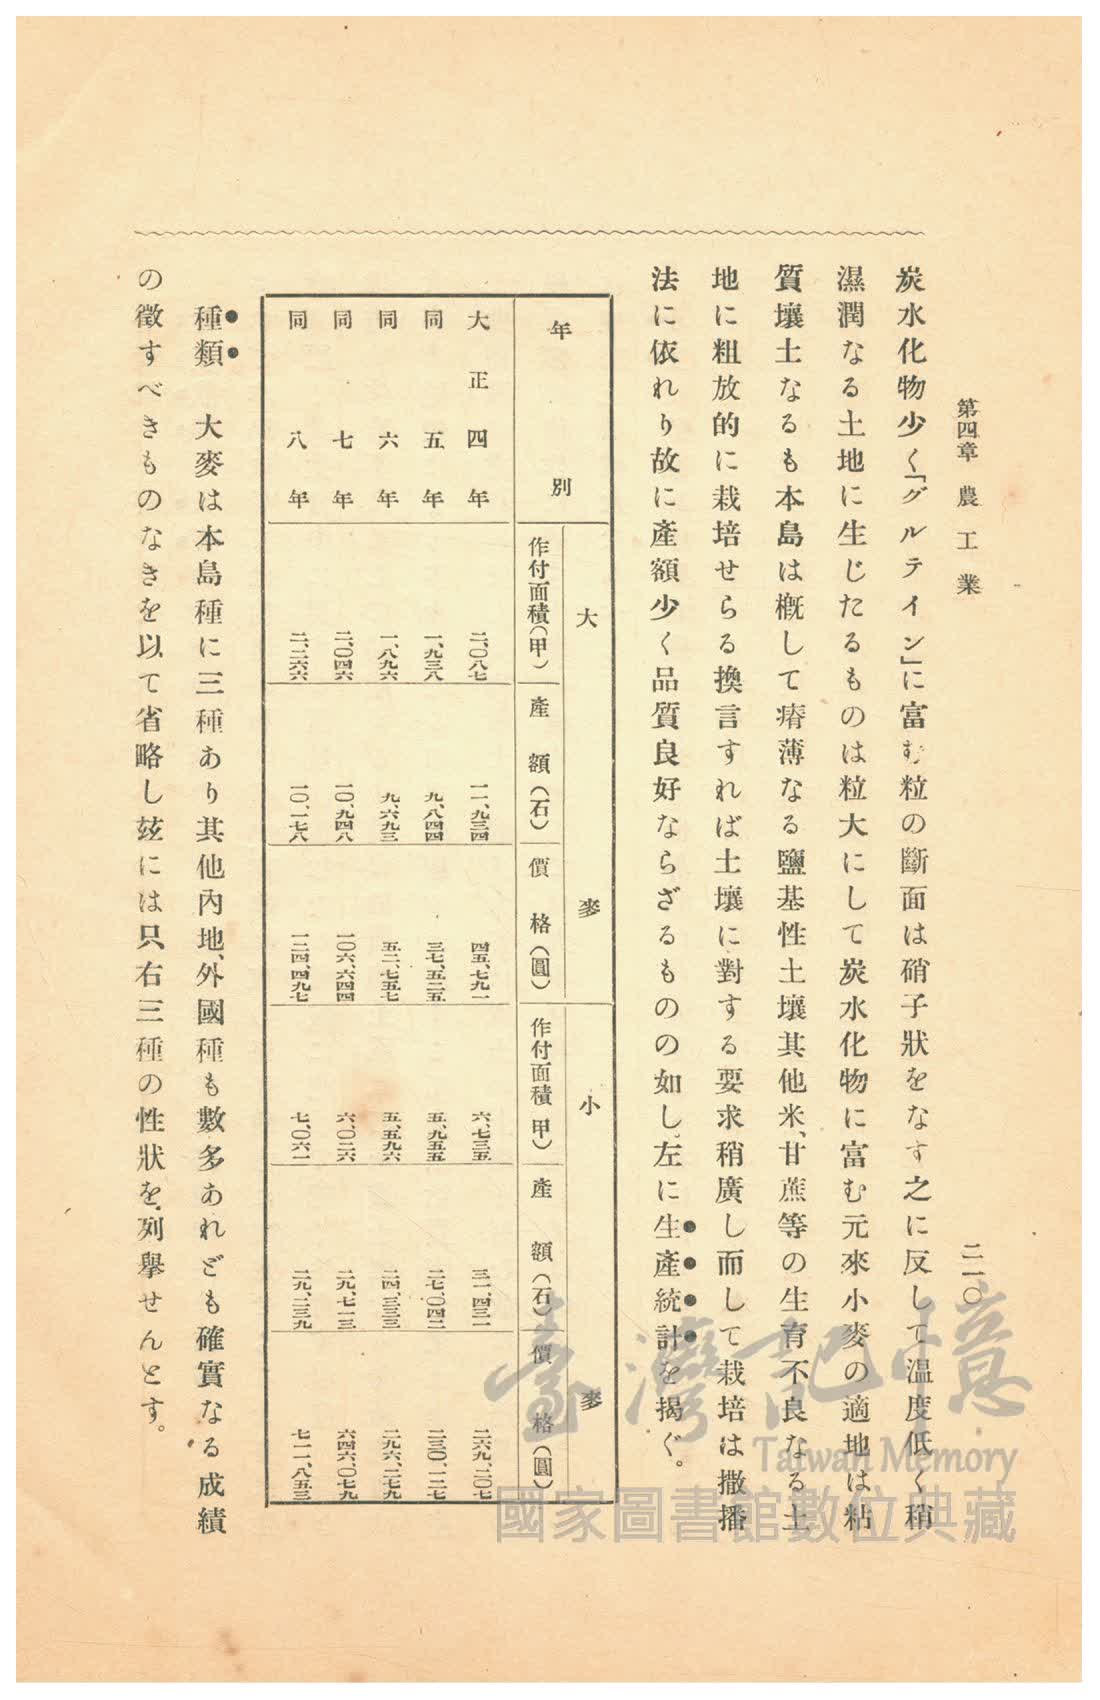 第四章 農工業
二一〇
炭水化物少く「グルテイン」に富む粒の斷面は硝子狀をなす之に反して温度低く稍
濕潤なる土地に生じたるものは粒大にして炭水化物に富む元來小麥の適地は粘
質壤土なるも本島は槪して瘠薄なる鹽基性土壤其他米、甘蔗等の生育不良なる土
地に粗放的に栽培せらる換言すれば土壤に對する要求稍廣し而して栽培は撒播
法に依れり故に產額少く品質良好ならざるものの如し。左に生產統計を揭ぐ。
年別
大麥
作付面積(甲)
產額(石)
價格(圓)
小麥
作付面積 甲)
產額(石)
價格(圓)
大正四年 二、〇八七 一一、九三四 四五、七九一 六、七三五 三一、四三一 二六九、二〇七
同五年 一、九三八 九、八四四 三七、五二五 五、九五五 二七、〇四二 二三〇、一二七
同六年 一、八九六 九、六九三 五二、七五七 五、五九六 二四、三三三 二九六、二七九
同七年 二、〇四六 一〇、九四八 一〇六、六四四 六、〇二六 二九、七一三 六四六、〇七九
同八年 二、二六六 一〇、一七八 一二四、四九七 七、〇六一 二九、二三九 七一一、八五三
種類 大麥は本島種に三種あり其他內地、外國種も數多あれども確實なる成績
の徵すべきものなきを以て省略し玆には只右三種の性狀を列擧せんとす。
臺灣記憶
Taiwan Memory
國家圖書館數位典藏